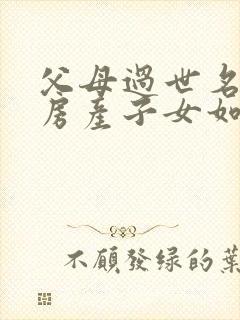 父母過世名
房産子女如
不願發绿的葉